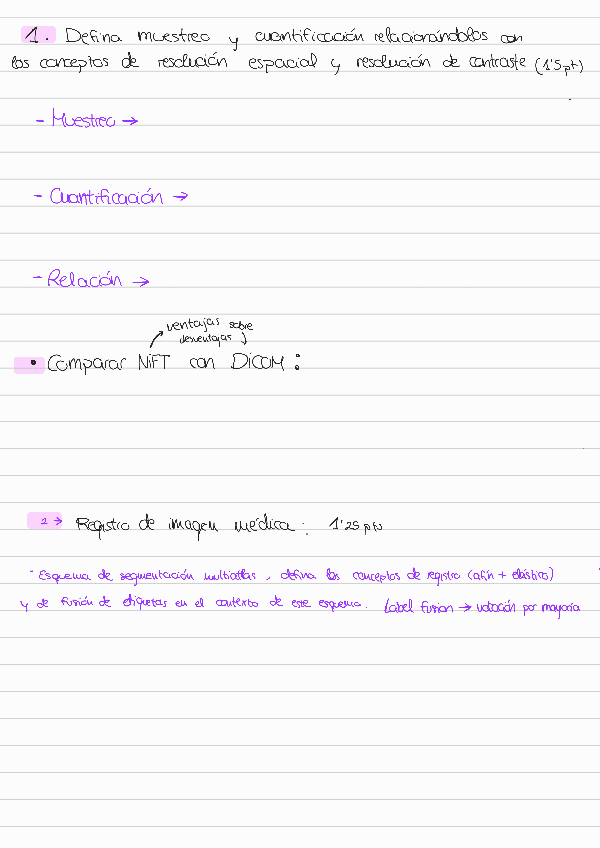 1. Defina muestreo y cuantificación relacionándolos con
los conceptos de resolución espacial y resolución de contraste (1'5 pt)
- Muestreo →
- Cuantificación →
- Relación →
ventajas sobre
desventajas
• Comparar NiFT con DiCOM :
2 → Registro de imagen médica: 1'25 pts
- Esquema de segmentación multiatlas, defina los conceptos de registro (afín + elástico)
y de fusión de etiquetas en el contexto de este esquema. Label fusion → votación por mayoría